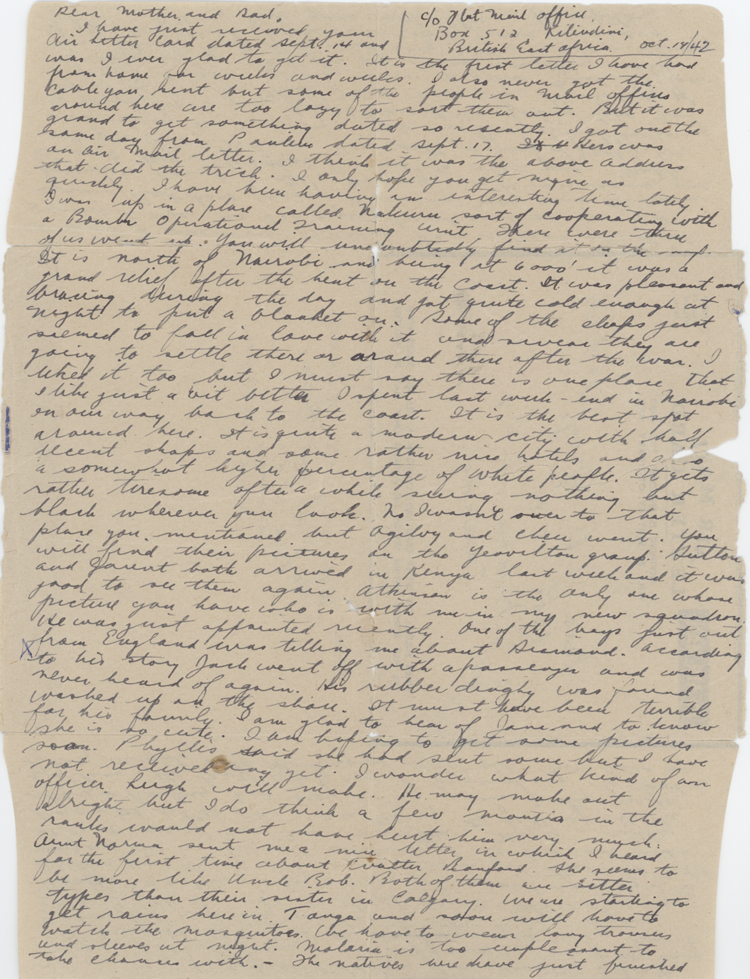 Dear Mother and Dad,
c/o Flat Mail Office,
Box 512 Kilindini,
British East Africa. Oct. 19/42
I have just received your
Air Letter Card dated Sept. 14 and
was I ever glad to get it. It is the first letter I have had
from home for weeks and weeks. I also never got the
cable you sent but some of the people in mail offices
around here are too lazy to sort them out. But it was
grand to get something dated so recently. I got one the
same day from Pauline dated Sept. 17. Hers was
an Air Mail letter. I think it was the above address
that did the trick. I only hope you get mine as
quickly. I have been having an interesting time lately
I was up in a place called Nakuru sort of cooperating with
a Bomber Operational Training Unit. There were three
of us went up. You will undoubtedly find it on the map.
It is north of Nairobi and being at 6000' it was a
grand relief after the heat on the coast. It was pleasant and
bracing during the day and got quite cold enough at
night to put a blanket on. Some of the chaps just
seemed to fall in love with it and swear they are
going to settle there or around there after the war. I
liked it too but I must say there is one place that
I like just a bit better I spent last week-end in Nairobi
on our way back to the coast. It is the best spot
around here. It is quite a modern city with half
recent shops and some rather nice hotels and also
a somewhat higher percentage of white people. It gets
rather tiresome after a while seeing nothing but
black wherever you look. No I wasn't over to that
place you mentioned but Ogilvy and Cheu went. You
will find their pictures in the Yeovilton group. Sutton
and Parent both arrived in Kenya last week and it was
good to see them again. Atkinson is the only one whose
picture you have who is with me in my new squadron.
He was just appointed recently. One of the boys just out
from England was telling me about Diamond. According
to his story Jack went off with a passenger and was
never heard of again. His rubber dinghy was found
washed up on the shore. It must have been terrible
for his family. I am glad to hear of Jane and to know
she is so cute. I am hoping to get some pictures
soon. Phyllis said she had sent some but I have
not received any yet. I wonder what kind of an
officer Hugh will make. He may make out
alright but I do think a few months in the
ranks would not have hurt him very much.
Aunt Norma sent me a nice letter in which I heard
for the first time about Banford. She seems to
be more like Uncle Bob. Both of them are better
types than their sister in Calgary. We are starting to
get rains here in Tanga and soon will have to
watch the mosquitoes. We have to wear long trousers
and sleeves at night. Malaria is too unpleasant to
take chances with. - The natives here have just finished